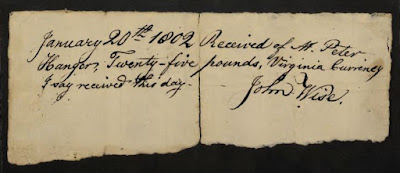 January 20th 1802 Received of Mr. Peter
Hanger, Twenty-five pounds, Virginia Currency
I say received this day.
John Wise.